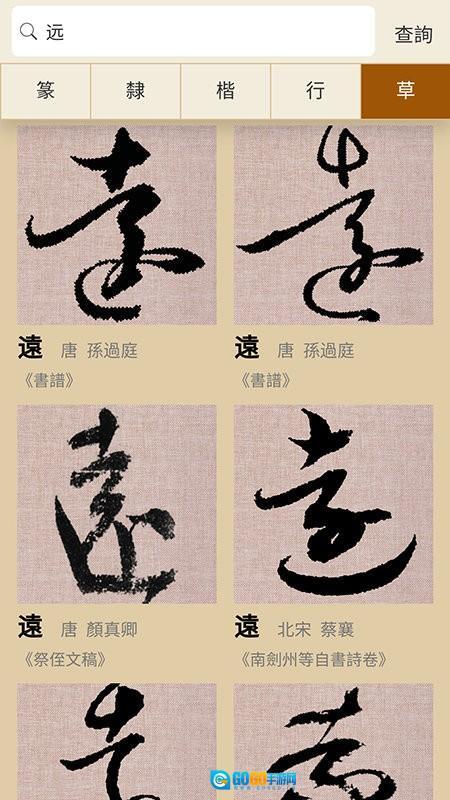 远
查詢
篆 隸 楷 行 草
遠 唐 孫過庭
《書譜》
遠 唐 孫過庭
《書譜》
遠 唐 顏真卿
《祭侄文稿》
遠 北宋 蔡襄
《南劍州等自書詩卷》
GOGO手游网